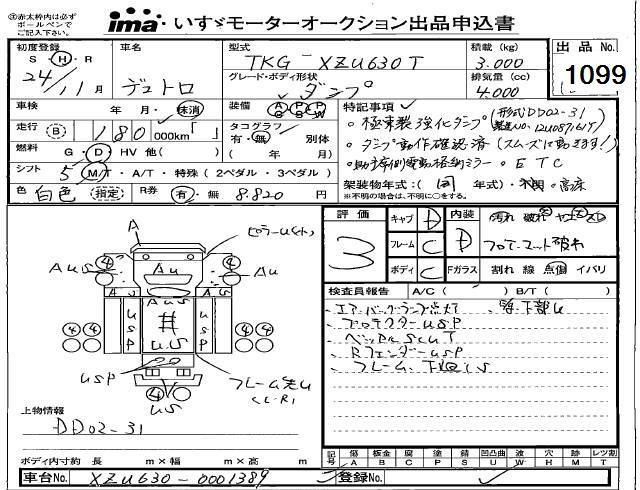 ※赤太枠内は必ず
ボールペンで
ご記入下さい。
ima いすゞモーターオークション出品申込書
初度登録 車名 型式 積載 (kg) 出品 No.
S H R TKG - XZU630T 3.000
24/11月 デュトロ グレード・ボディ形状 排気量 (cc) 1099
ダンプ 4.000
車検 年 月・抹消 装備 AC PS PW 特記事項
走行 B 180 000km「 」 タコグラフ 有・無 別体 ・極東製強化ダンプ (形式DD02-31
燃料 G・D・HV 他( ) ( 年 月) ・ダンプ動作確認済(スムーズに動きます!)
シフト 5 M/T・A/T・特殊(2ペダル・3ペダル) ・助手席側電動格納ミラー ・ETC
色 白色 (指定) R券 有・無 8.820円 架装物年式:(同 年式)・不明・高床
※不明の場合は、不明に○をする。
評価 キャブ D 内装 汚れ 破れ
3 フレーム C D フロアーマット破れ
ボディ C Fガラス 割れ 線 点傷 イバリ
検査員報告 A/C ( ) B/T ( )
エアーバックランプ点灯 下部U
プロテクターUSP
ベッドル SCUT
RフェンダーUSP
フレーム、下回りS
A ピラーU(小)
④ ④
AUS Au AU
A U S A U S
AUS
USP # USP
U.S
USP フレーム先U
(L・R)
④ ④
US
上物情報
DD02-31
ボディ内寸約 長 m×幅 m×高 m
記号 傷 A 板金 B 腐 C 塗 P 錆 S 凹凸曲 U 波 W 穴 H 跡 M レツ割 T
車台No. XZU630-0001389 登録No.